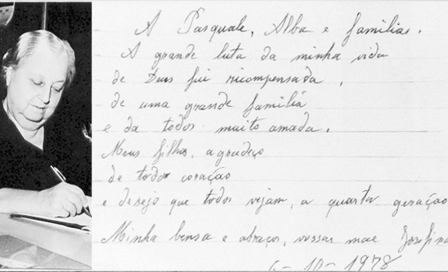 A Pasquale, Alba e famílias.
A grande luta da minha vida
de Deus fui recompensada,
de uma grande família
e da todos muito amada.
Meus filhos, agradeço
de todo coração
e desejo que todos vejam, a quarta geração
Minha bensa e abraços, vossas mae Josefina
6-10-1978